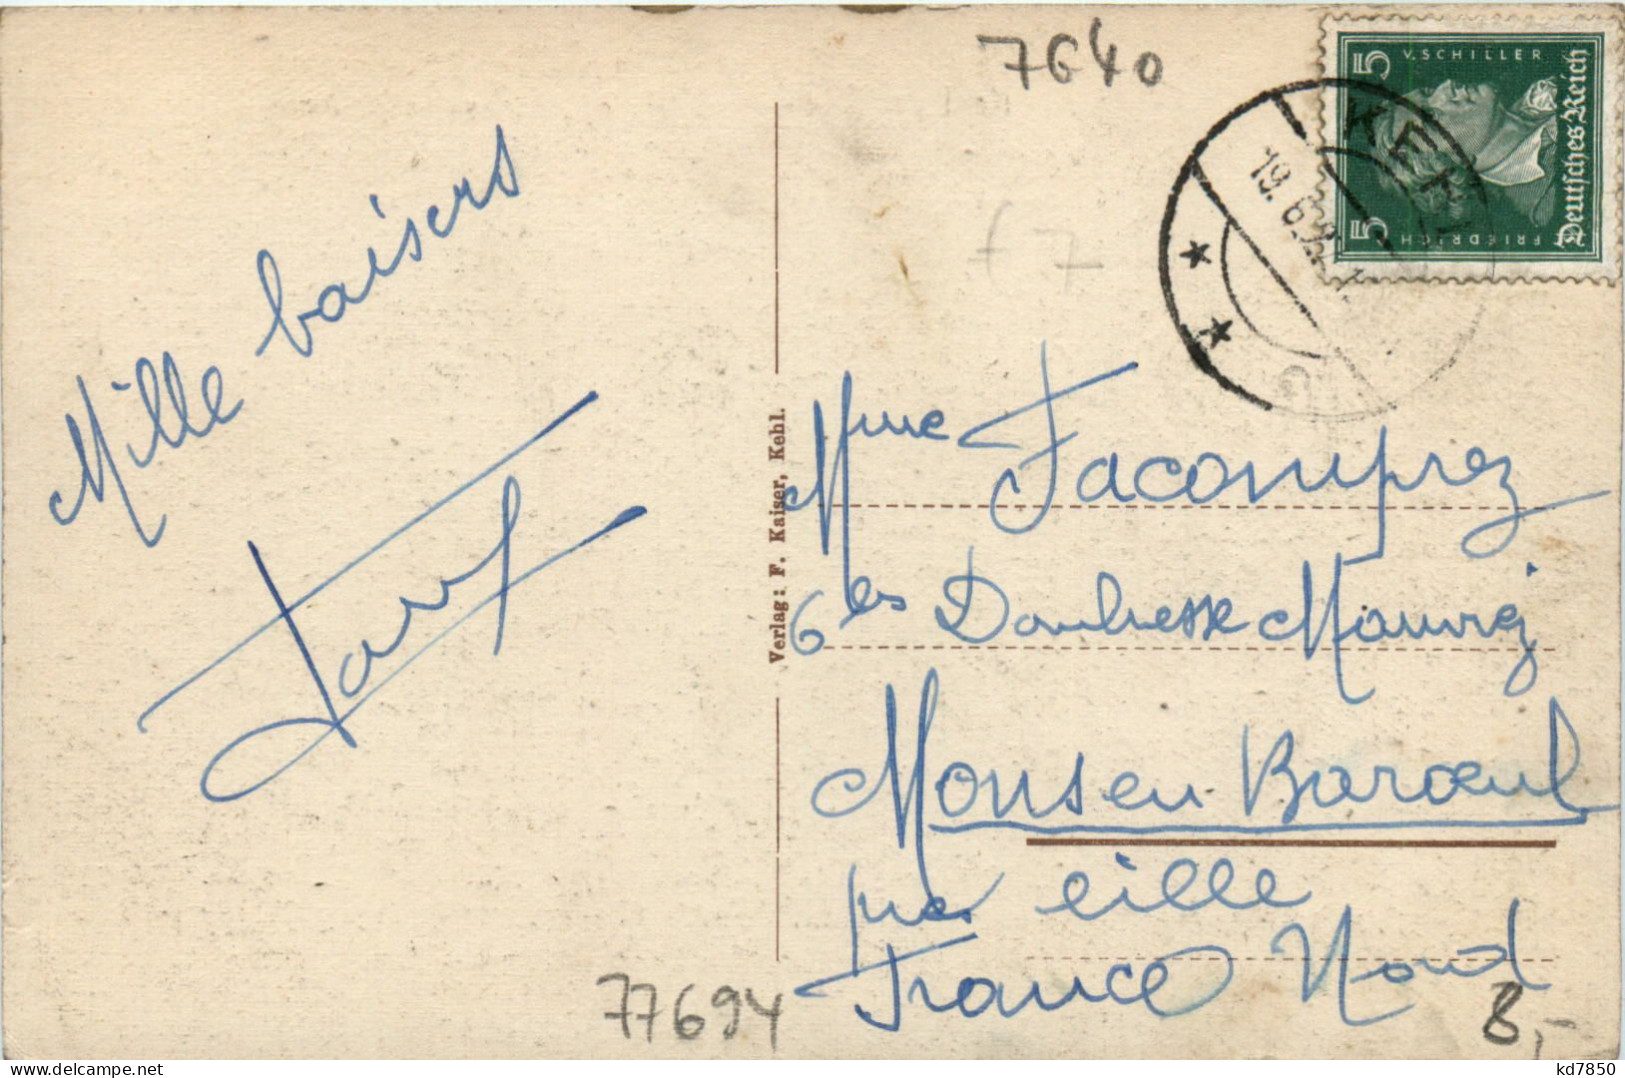 7640
V. SCHILLER
5
5
FRIEDRICH
Deutsches Reich
KEHL
19. 6.
Mille baisers
Verlag: F. Kaiser, Kehl.
Mme Jacomprez
6 Mauvrej
Mons en Baroeul
près Lille
France Nord
77694
8,-
kd7850